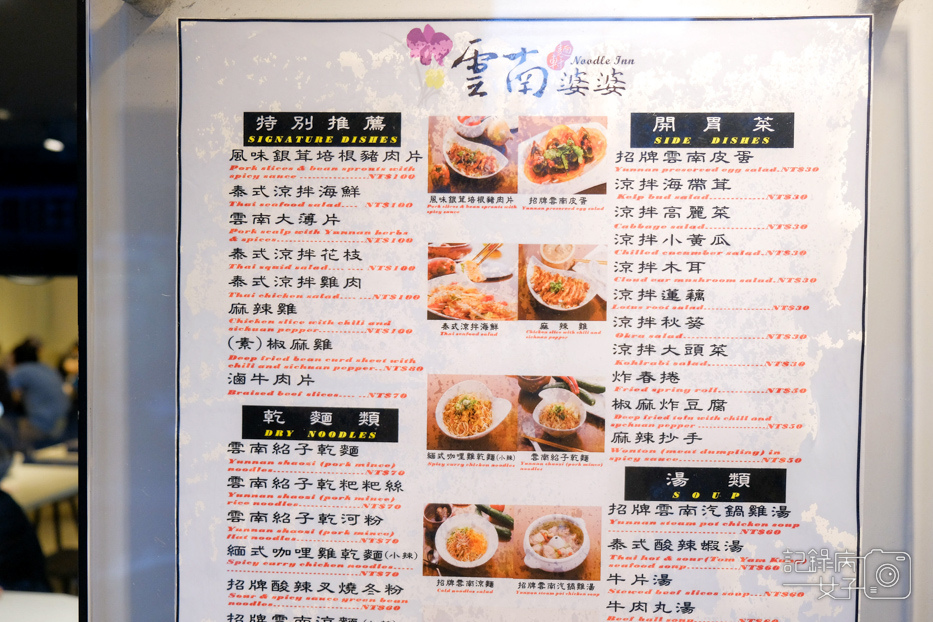 雲南婆婆
Noodle Inn
特別推薦
SIGNATURE DISHES
風味銀茸培根豬肉片
Pork slices & bean sprouts with
spicy sauce ............NT$100
泰式涼拌海鮮
Thai seafood salad............NT$160
雲南大薄片
Pork scalp with Yunnan herbs
& spices............NT$100
泰式涼拌花枝
Thai squid salad............NT$100
泰式涼拌雞肉
Thai chicken salad............NT$100
麻辣雞
Chicken slice with chili and
sichuan pepper............NT$100
(素)椒麻雞
Deep fried bean curd sheet with
chili and sichuan pepper...NT$80
滷牛肉片
Braised beef slices............NT$70
乾麵類
DRY NOODLES
雲南紹子乾麵
Yunnan shaozi (pork mince)
noodles............NT$70
雲南紹子乾粑粑絲
Yunnan shaozi (pork mince)
rice noodles............NT$70
雲南紹子乾河粉
Yunnan shaozi (pork mince)
Hat noodles............NT$70
緬式咖哩雞乾麵(小辣)
Spicy curry chicken noodles....
............NT$70
招牌酸辣叉燒冬粉
Sour & spicy sauce green bean
noodles............NT$60
招牌雲南涼麵
風味銀茸培根豬肉片
Pork slices & bean sprouts with
spicy sauce
招牌雲南皮蛋
Yunnan preserved egg salad
泰式涼拌海鮮
Thai seafood salad
麻辣雞
Chicken slice with chili and
sichuan pepper
緬式咖哩雞乾麵(小辣)
Spicy curry chicken noodles
雲南紹子乾麵
Yunnan shaozi (pork mince)
noodles
招牌雲南涼麵
Cold noodles salad
招牌雲南汽鍋雞湯
Yunnan steam pot chicken soup
開胃菜
SIDE DISHES
招牌雲南皮蛋
Yunnan preserved egg salad.NT$30
涼拌海帶茸
Kelp bud salad............NT$30
涼拌高麗菜
Cabbage salad............NT$30
涼拌小黃瓜
Chilled cucumber salad.NT$30
涼拌木耳
Cloud ear mushroom salad.NT$30
涼拌蓮藕
Lotus rood salad............NT$30
涼拌秋葵
Okra salad............NT$30
涼拌大頭菜
Kohirabi salad............NT$30
炸春捲
Fried spring roll............NT$50
椒麻炸豆腐
Deep fried tofu with chill and
spchuan pepper ............NT$50
麻辣抄手
Wonton (meat dumpling) in
spicy sauce............NT$50
湯類
SOUP
招牌雲南汽鍋雞湯
Yunnan steam pot chicken soup
............NT$60
泰式酸辣蝦湯
seafood soup............NT$60
牛片湯
Stewed beef slices soup...NT$60
牛肉丸湯
Beef ball soup
記錄內女子